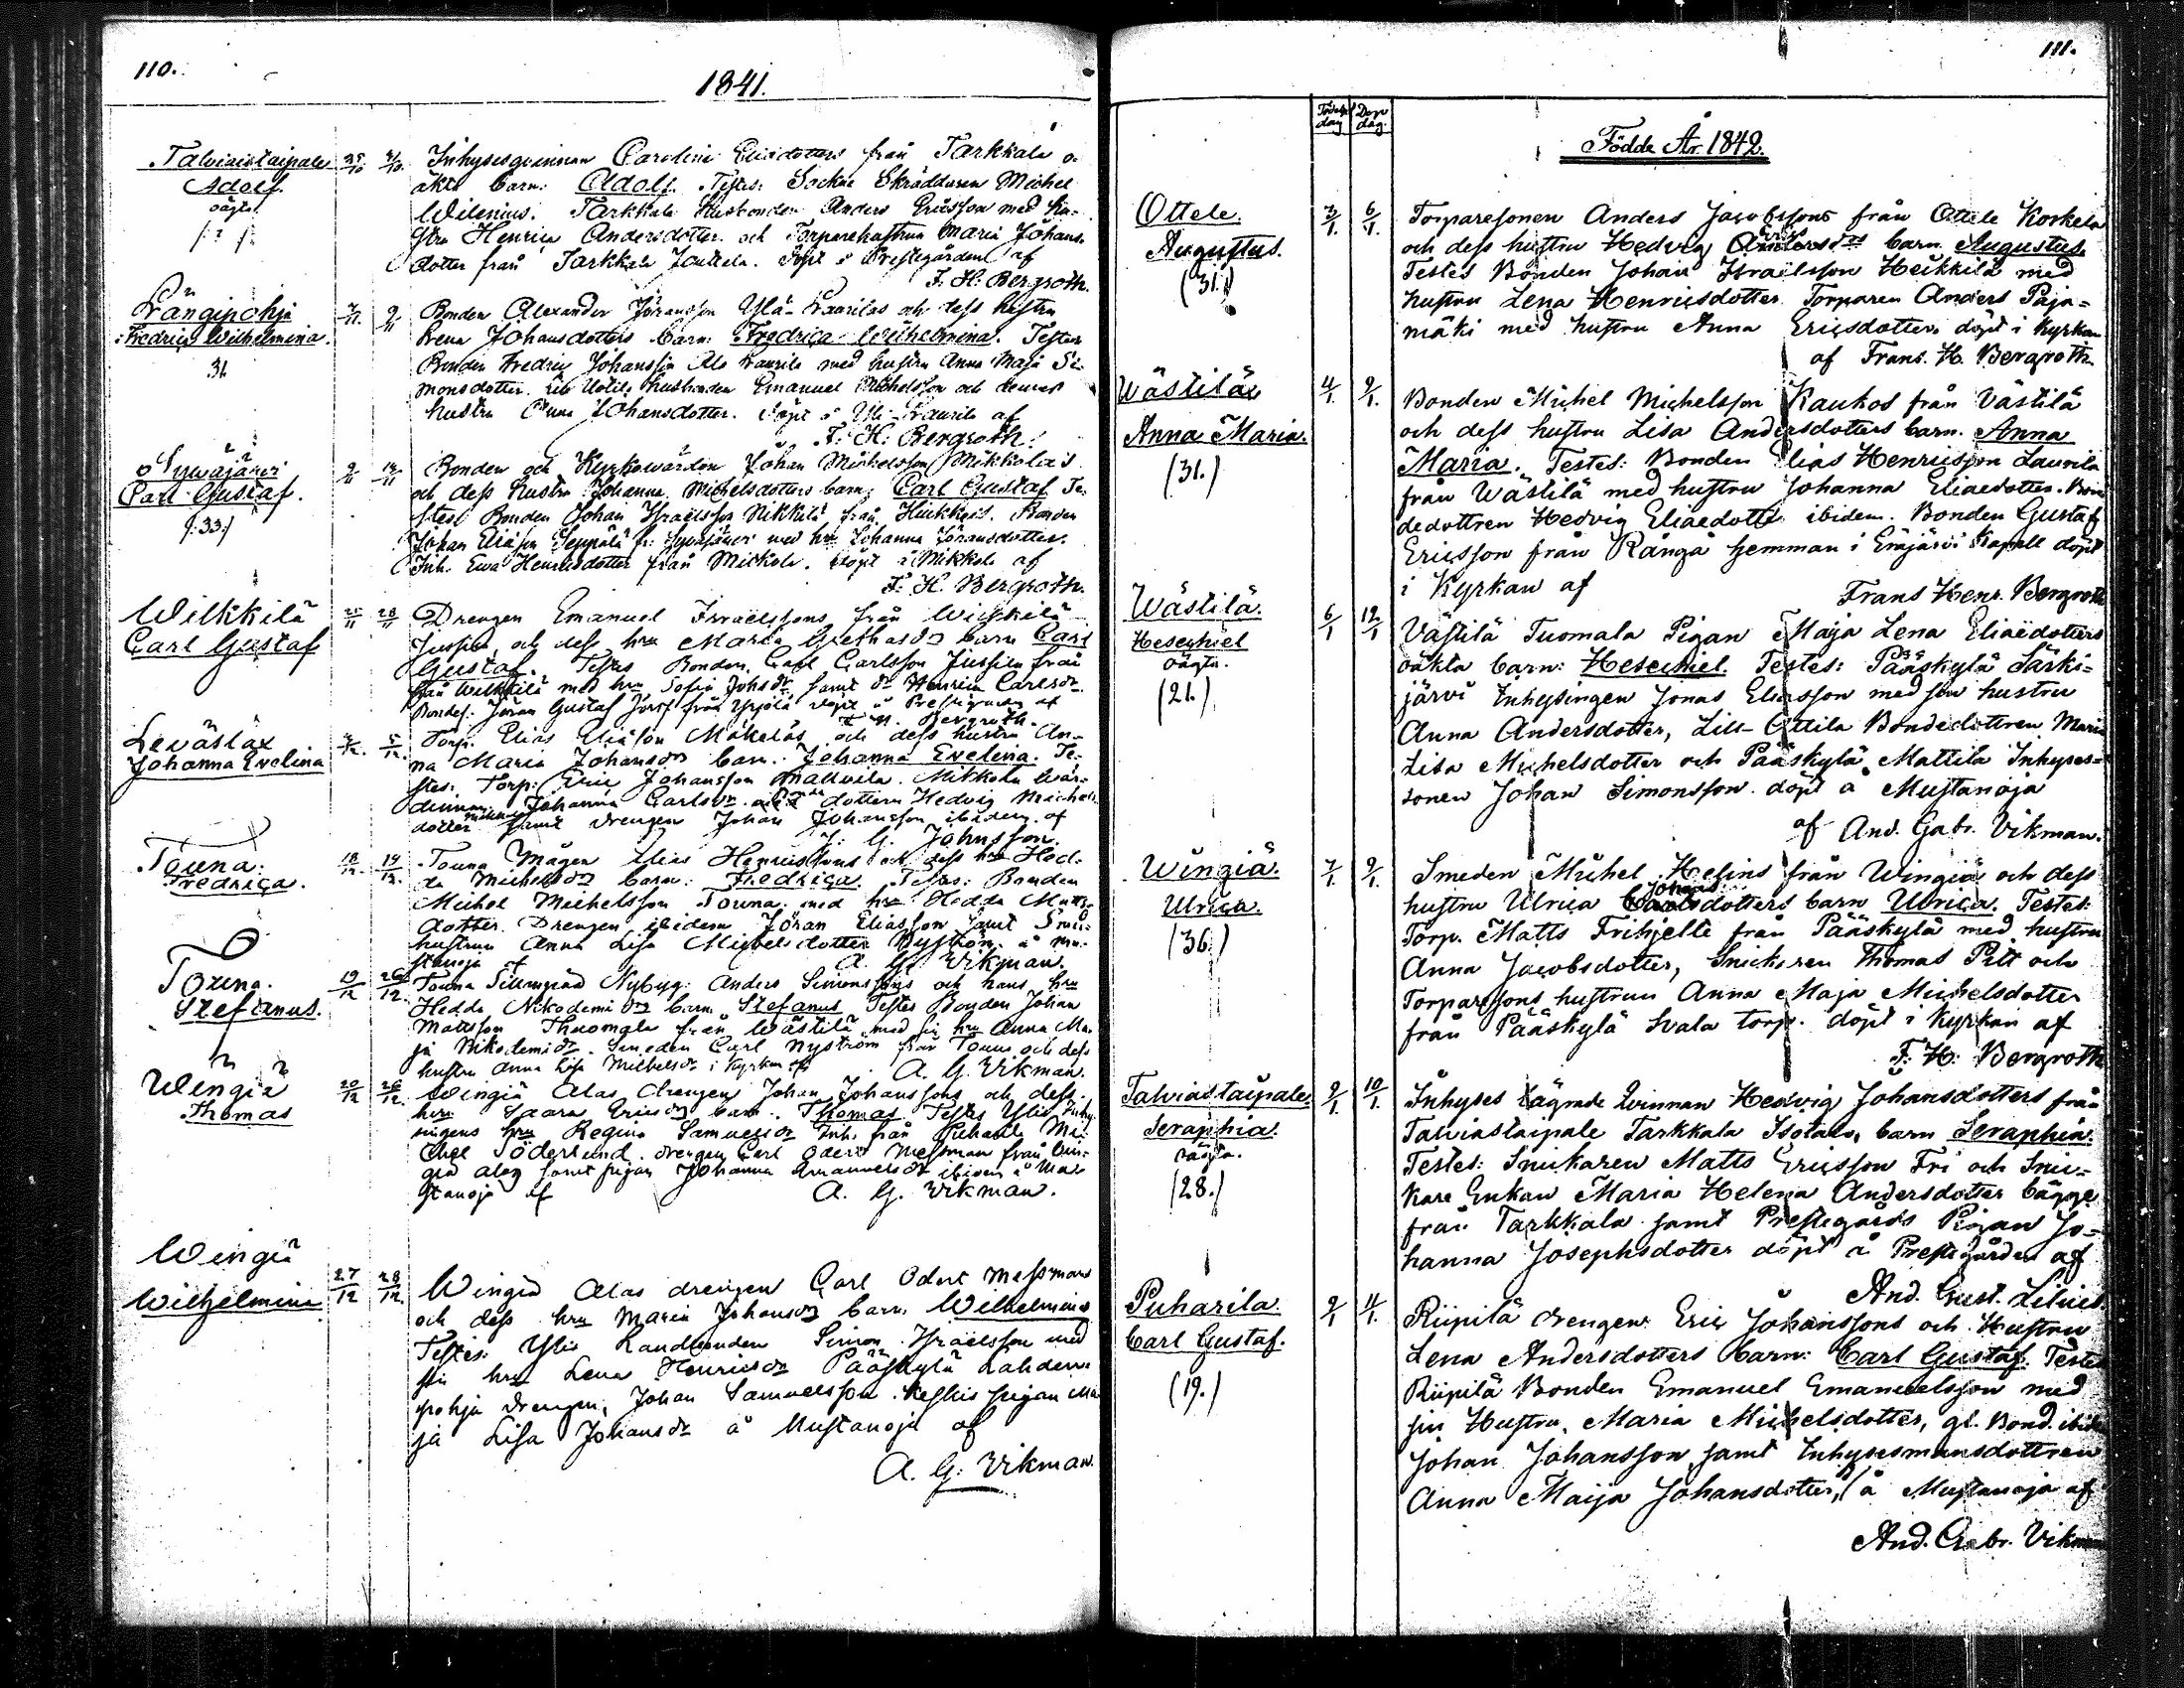 110.
1841.
Talviaistaipale
Adolf.
oägta
25/10 31/10
Inhysesqvinnan Carolina Eliædotters från Tarkkala o-
äkta barn: Adolf. Testes: Sockne Skräddaren Michel
Wilenius. Tarkkala Husbonden Anders Ericsson med hu-
stru Henrica Andersdotter och Torparehustrun Maria Johans-
dotter från Tarkkala Jouttela. döpt å Prestegården af
F. H: Bergroth.
Prängipohja
Fredrica Wilhelmina.
31
7/11. 9/11
Bonden Alexander Jöransson Ylä-Laurilas och dess hustru
Lena Johansdotters barn: Fredrica Wilhelmina. Testes
Bonden Fredric Johansson Ala Laurila med hustru Anna Maja Si-
monsdotter. Husbonden Emanuel Michelsson och dennes
hustru Anna Johansdotter. döpt å Yli-Laurila af
F: H: Bergroth.
Sywäjärvi
Carl Gustaf.
/:33:/
9/11 14/11
Bonden och Kyrkowärden Johan Michelsson Mikkola's
och dess hustru Johanna Michelsdotters barn: Carl Gustaf Te-
stes: Bonden Johan Israelsson Nikkilä från Huikkois. Bonden
Johan Eliæson Seppälä fr: Sywäjärvi med hru Johanna Jöransdotter.
Inh. Ewa Henricsdotter från Mickola. döpt å Mikkola af
F: H. Bergroth.
Wilkkilä
Carl Gustaf
25/11 28/11
Drengen Emanuel Israelssons från Wilkkilä
Jussila och dess hru Maria Grethasdr barn Carl
Gustaf. Testes Bonden Carl Carlsson Jussila från
från Wilkkilä med hru Sofia Johsdr samt dr Henrica Carlsdr
Bondes: Jöran Gustaf Josef från Yijälä döpt å Prestegården af
F. H. Bergroth.
Leväslax
Johanna Evelina
4/12. 5/12.
Torp: Elias Eliæson Mäkeläs och dess hustru An-
na Maria Johansdr barn: Johanna Evelina. Te-
stes: Torp: Eric Johansson Mallvila. Mikkola Wär-
dinnan Johanna Carlsdr och dottern Hedvig Michels-
dotter samt drengen Johan Johansson ibidem. af
J: G. Johnsson.
Touna.
Fredrica.
18/12. 19/12.
Touna Mågen Elias Henricssons och dess hru Hed-
da Michelsdr barn: Fredrica. Testes: Bonden
Michel Michelsson Touna med hru Hedda Matts-
dotter. Drengen ibidem Johan Eliasson samt Smed-
hustrun Anna Lisa Michelsdotter Nyström. å Mu-
stanoja af A. G. Vikman.
Touna.
Stefanus.
19/12 26/12.
Touna Sillunpää Nybyg: Anders Simonssons och hans hru
Hedda Nikodemi dr barn Stefanus. Testes Bonden Johan
Mattsson Thuomala från Wästilä med sin hru Anna Ma-
ja Nikodemidr. Smeden Carl Nyström från Touna och dess
hustru Anna Lisa Michelsdr i Kyrkan af A. G. Vikman.
Wängiä
Thomas
20/12 26/12.
Wingiä Alas drengen Johan Johanssons och dess
hru Saara Ericsdr barn. Thomas Testes Ylis Inhy-
singens hru Regina Samuelsdr Inh. från Puharila Mi-
chel Söderlund. drengen Carl Odert Messman från Win-
giä alas samt pigan Johanna Emanuelsdr ibidem å Mu-
stanoja af A. G. Vikman.
Wingiä
Wilhelmina
27/12 28/12.
Wingiä Alas drengen Carl Odert Messmans
och dess hru Maria Johansdr barn. Wilhelmina
Testes: Ylis Landbonden Simon Israelsson med
sin hru Lena Henricsdr Pääskylä Lahden-
pohja drengen Johan Samuelsson Keskis pigan Ma-
ja Lisa Johansdr å Mustanoja af
A. G: Vikman.
111.
Födelse dag Dop dag.
Födde År. 1842.
Ottele.
Augustus.
(31.)
3/1. 6/1.
Torparesonen Anders Jacobssons från Ottele Korkela
och dess hustru Hedvig Andersdrs barn Augustus.
Erics
Testes Bonden Johan Israëlsson Heikkilä med
hustru Lena Henricsdotter. Torparen Anders Paja-
mäki med hustru Anna Ericsdotter. döpt i Kyrkan
af Frans. H. Bergroth.
Wästilä
Anna Maria.
(31.)
4/1. 9/1.
Bonden Michel Michelsson Kaukos från Västilä
och dess hustru Lisa Andersdotters barn. Anna
Maria. Testes: Bonden Elias Henricsson Laurila
från Wästilä med hustru Johanna Eliaedotter. Bon-
dedottren Hedvig Eliaedotter ibidem. Bonden Gustaf
Ericsson från Ränga hemman i Eräjärvi Kapell döpt
i Kyrkan af Frans Henr. Bergroth
Wästilä.
Hesechiel
oägta.
(21.)
6/1 12/1
Västilä Tuomala Pigan Maija Lena Eliaedotters
oäkta barn: Hesechiel. Testes: Pääskylä Särki-
järvi Inhysingen Jonas Eliasson med sin hustru
Anna Andersdotter, Lill-Ottila Bondedottren Maria
Lisa Michelsdotter och Pääskylä Mattila Inhyses-
sonen Johan Simonsson. döpt å Mustanoja
af And. Gabr. Vikman.
Wingiä.
Ulrica.
(36.)
7/1. 9/1.
Smeden Michel Helins från Wingiä och dess
Johans
hustru Ulrica Carlsdotters barn Ulrica. Testes:
Torp. Matts Frihjelte från Pääskylä med hustru
Anna Jacobsdotter, Snickaren Thomas Pitt och
Torparesons hustrun Anna Maja Michelsdotter
från Pääskylä Svala torp. döpt i Kyrkan af
F: H: Bergroth
Talviastaipale.
Seraphia.
oägta.
(28.)
9/1. 10/1.
Inhyses lägrade Qvinnan Hedvig Johansdotters från
Talviastaipale Tarkkala Isotalo, barn Seraphia.
Testes: Snickaren Matts Ericsson Fri och Snic-
kare Enkan Maria Helena Andersdotter bägge
från Tarkkala samt Prestegårds Pigan Jo-
hanna Josephsdotter döpt å Prestgården af
And. Gust. Lilius.
Puharila.
Carl Gustaf.
(19.)
9/1 11/1.
Riipilä drengen Eric Johanssons och Hustru
Lena Andersdotters barn: Carl Gustaf. Testes
Riipilä Bonden Emanuel Emanuelsson med
sin Hustru, Maria Michelsdotter, gl. Bond. ibidem
Johan Johansson samt Inhysesmansdottren
Anna Maija Johansdotter, å Mustanoja af
And. Gabr. Vikman